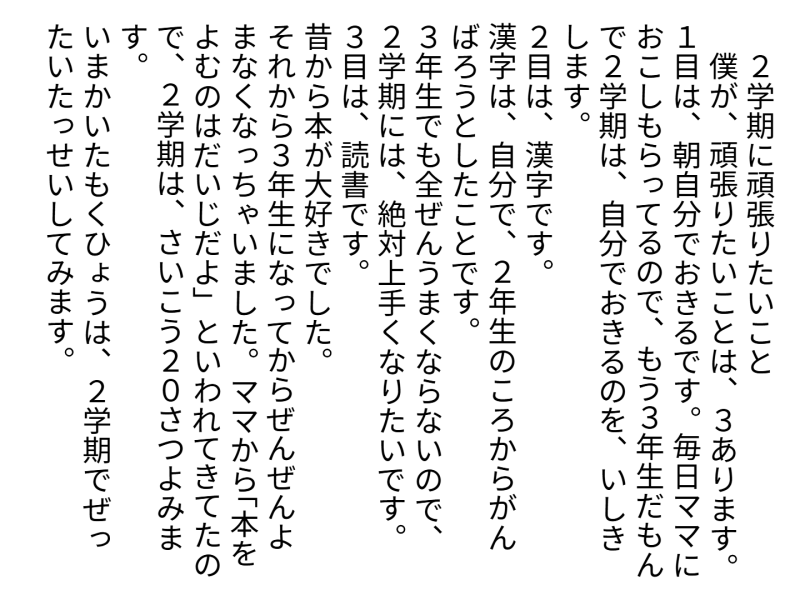 ２学期に頑張りたいこと
僕が、頑張りたいことは、３あります。
１目は、朝自分でおきるです。毎日ママに
おこしもらってるので、もう３年生だもん
で２学期は、自分でおきるのを、いしき
します。
２目は、漢字です。
漢字は、自分で、２年生のころからがん
ばろうとしたことです。
３年生でも全ぜんうまくならないので、
２学期には、絶対上手くなりたいです。
３目は、読書です。
昔から本が大好きでした。
それから３年生になってからぜんぜんよ
まなくなっちゃいました。ママから「本を
よむのはだいじだよ」といわれてきてたの
で、２学期は、さいこう２０さつよみま
す。
いまかいたもくひょうは、２学期でぜっ
たいたっせいしてみます。